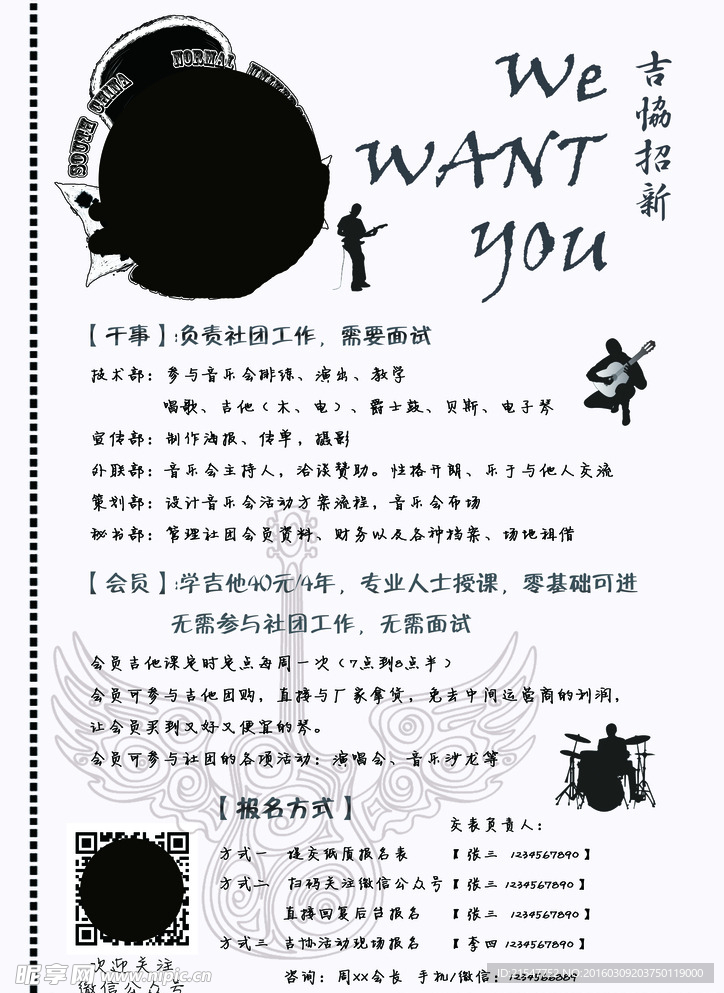 SOUTH CHINA NORMAL
We
WANT
YOU
吉协招新
【干事】:负责社团工作，需要面试
技术部：参与音乐会排练、演出、教学
唱歌、吉他（木、电）、爵士鼓、贝斯、电子琴
宣传部：制作海报、传单，摄影
外联部：音乐会主持人，洽谈赞助。性格开朗、乐于与他人交流
策划部：设计音乐会活动方案流程，音乐会布场
秘书部：管理社团会员资料、财务以及各种档案、场地租借
【会员】:学吉他40元/4年，专业人士授课，零基础可进
无需参与社团工作，无需面试
会员吉他课定时定点每周一次（7点到8点半）
会员可参与吉他团购，直接与厂家拿货，免去中间运营商的利润，
让会员买到又好又便宜的琴。
会员可参与社团的各项活动：演唱会、音乐沙龙等
【报名方式】
交表负责人：
方式一 提交纸质报名表 【张三 1234567890】
方式二 扫码关注微信公众号【张三 1234567890】
直接回复后台报名 【张三 1234567890】
方式三 吉协活动现场报名 【李四 1234567890】
欢迎关注
微信公众号
咨询：周XX会长 手机/微信：1234566889
昵享网 www.nipic.cn
ID:21547752 NO:20160309203750119000